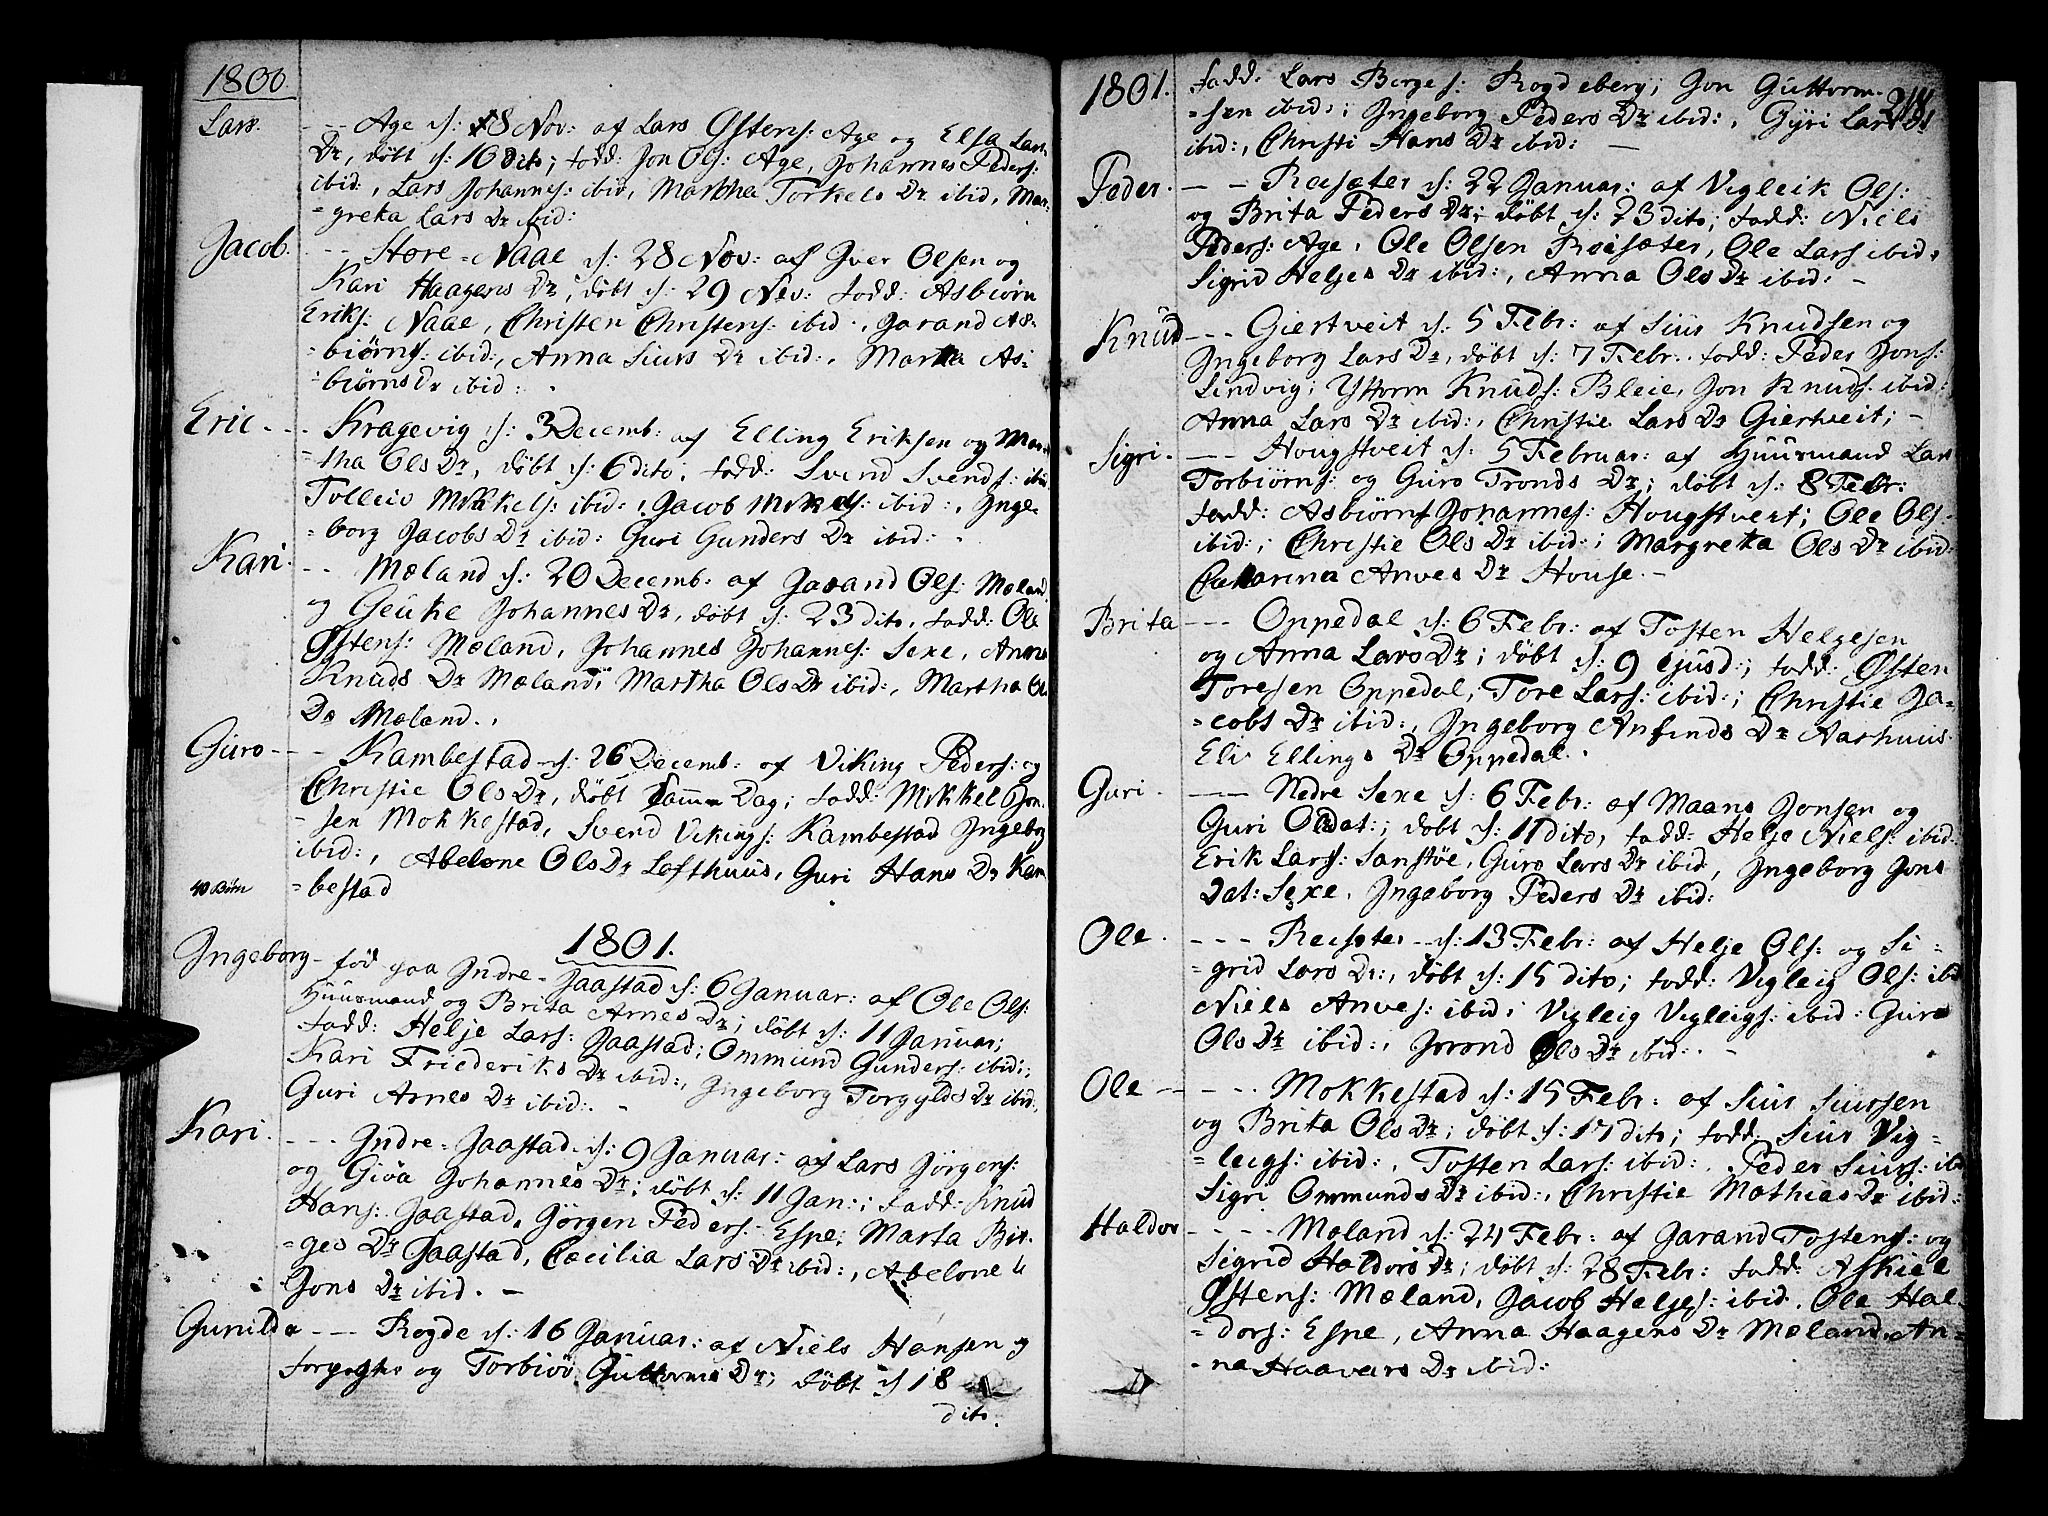 1800.
Lars. - - - Age d: 8 Nov: af Lars Østens: Age og Elsa Lars
Dr, døbt d: 16 dito; fadd: Jon Ols: Age, Johannes Peders:
ibid:, Lars Johannes: ibid, Martha Torkels Dr ibid, Mar=
=greta Lars Dr ibid:
Jacob. - - Store=Naae d: 28 Nov: af Iver Olsen og
Kari Haagens Dr, døbt d: 29 Nov: fadd: Asbiørn
Eriks: Naae, Christen Christens: ibid., Jarand As=
=biørns: ibid:, Anna Siurs Dr ibid:, Martha As=
=biørns Dr ibid:.
Eric - - - Kragevig d: 3 Decemb: af Elling Eriksen og Mar=
=tha Ols Dr, døbt d: 6 dito, fadd: Svend Svends: ibid
Tolleiv Mikkels: ibid:, Jacob Mikels: ibid:, Inge=
=borg Jacobs Dr ibid: Guri Gunders Dr ibid:.
Kari. - - Mæland d: 20 Decemb: af Jarand Ols: Mæland
og Geuke Johannes Dr, døbt d: 23 dito, fadd: Ole
Østens: Mæland, Johannes Johannes: Sexe, Anna
Knuds Dr Mæland, Martha Ols Dr ibid:, Martha Ols
Dr Mæland.,
Guro - - - Kambestad d: 26 Decemb: af Viking Peders: og
Christie Ols Dr, døbt samme Dag; fadd: Mikkel Jon=
=sen Mokkestad, Svend Vikings: Kambestad Ingeborg
ibid:, Abelone Ols Dr Lofthuus, Guri Hans Dr Kam
40 Børn =bestad
1801.
Ingeborg - fød paa Indre-Jaastad d: 6 Januar: af Ole Ols:
Huusmand og Brita Arnes Dr; døbt d: 11 Januar;
fadd: Helje Lars: Jaastad; Ommund Gunders: ibid:;
Kari Frideriks Dr ibid:, Ingeborg Torgylds Dr ibid:,
Guri Arnes Dr ibid:. -
Kari. - - - Indre-Jaastad d: 9 Januar: af Lars Jørgens:
og Giøa Johannes Dr; døbt d: 11 Jan:; fadd: Knud
Hans: Jaastad, Jørgen Peders: Espe, Marta Bir=
=ges Dr Jaastad, Cæcilia Lars Dr ibid:, Abelone
Jons Dr ibid. -
Gunilda - - - Rogde d: 16 Januar: af Niels Hansen og
og Torbiør Guttorms Dr; døbt d 18
dito.
1801.
218
fadd: Lars Berges: Rogdeberg; Jon Guttorm=
=sen ibid:; Ingeborg Peders Dr ibid:, Gyri Lars Dr
ibid:, Christi Hans Dr ibid: -
Peder. - - Reisæter d: 22 Januar: af Vigleik Ols:
og Brita Peders Dr; døbt d: 23 dito; fadd: Niels
Peders: Age, Ole Olsen Reisæter, Ole Lars ibid,
Sigrid Heljes Dr ibid:, Anna Ols Dr ibid: -
Knud - - - Giertveit d: 5 Febr: af Siur Knudsen og
Ingeborg Lars Dr, døbt d: 7 Febr:. fadd: Peder Jons:
Lindvig; Knuds: Bleie, Jon Knuds: ibid:
Anna Lars Dr ibid:, Christie Lars Dr Giertveit; -
Sigri. - - - Hougstveit d: 5 Februar: af Huusmand Lars
Torbiørns: og Guro Tronds Dr; døbt d: 8 Febr:
fadd: Asbiørn Johannes: Hougstveit; Ole Ols.
ibid:; Christie Ols Dr ibid:; Margreta Ols Dr ibid:
Catarina Anves Dr House. -
Brita - - - Oppedal d: 6 Febr: af Tosten Helgesen
og Anna Lars Dr; døbt d: 9 ejusd:; fadd: Østen
Toresen Oppedal, Tore Lars: ibid:; Christie Ja=
=cobs Dr ibid:, Ingeborg Anfinds Dr Aarhuus
Eli Ellings Dr Oppedal.
Guri. - - - Nedre Sexe d: 6 Febr: af Maans Jonsen og
Guri Ols dat:; døbt d: 11 dito, fadd: Helje Niels: ibid:
Erik Larss: Sanstøe, Guro Lars Dr ibid, Ingeborg Jons
Dat: Sexe, Ingeborg Peders Dr ibid:
Ole. - - - Reisæter d: 13 Febr: af Helje Ols: og Si=
=grid Lars Dr:, døbt d: 15 dito; fadd: Vigleig Ols: ibid
Niels Anves: ibid; Vigleig Vigleigs: ibid: Guro
Ols Dr ibid:, Jorond Ols Dr ibid:. -
Ole - - - - Mokkestad d: 15 Febr: af Siur Siursen
og Brita Ols Dr; døbt d: 17 dito; fadd: Siur Vig=
=leigs: ibid:, Tosten Lars: ibid:, Peder Siurs: ibid
Sigri Ommunds Dr ibid:, Christie Mathias Dr ibid:
Haldor - - - - Mæland d: 24 Febr: af Jarand Tostens: og
Sigrid Haldors Dr; døbt d: 28 Febr: fadd: Askiel
Østens: Mæland, Jacob Heljes: ibid. Ole Hal=
=dors: Espe, Anna Haagens Dr Mæland. An=
=na Haavars Dr ibid: